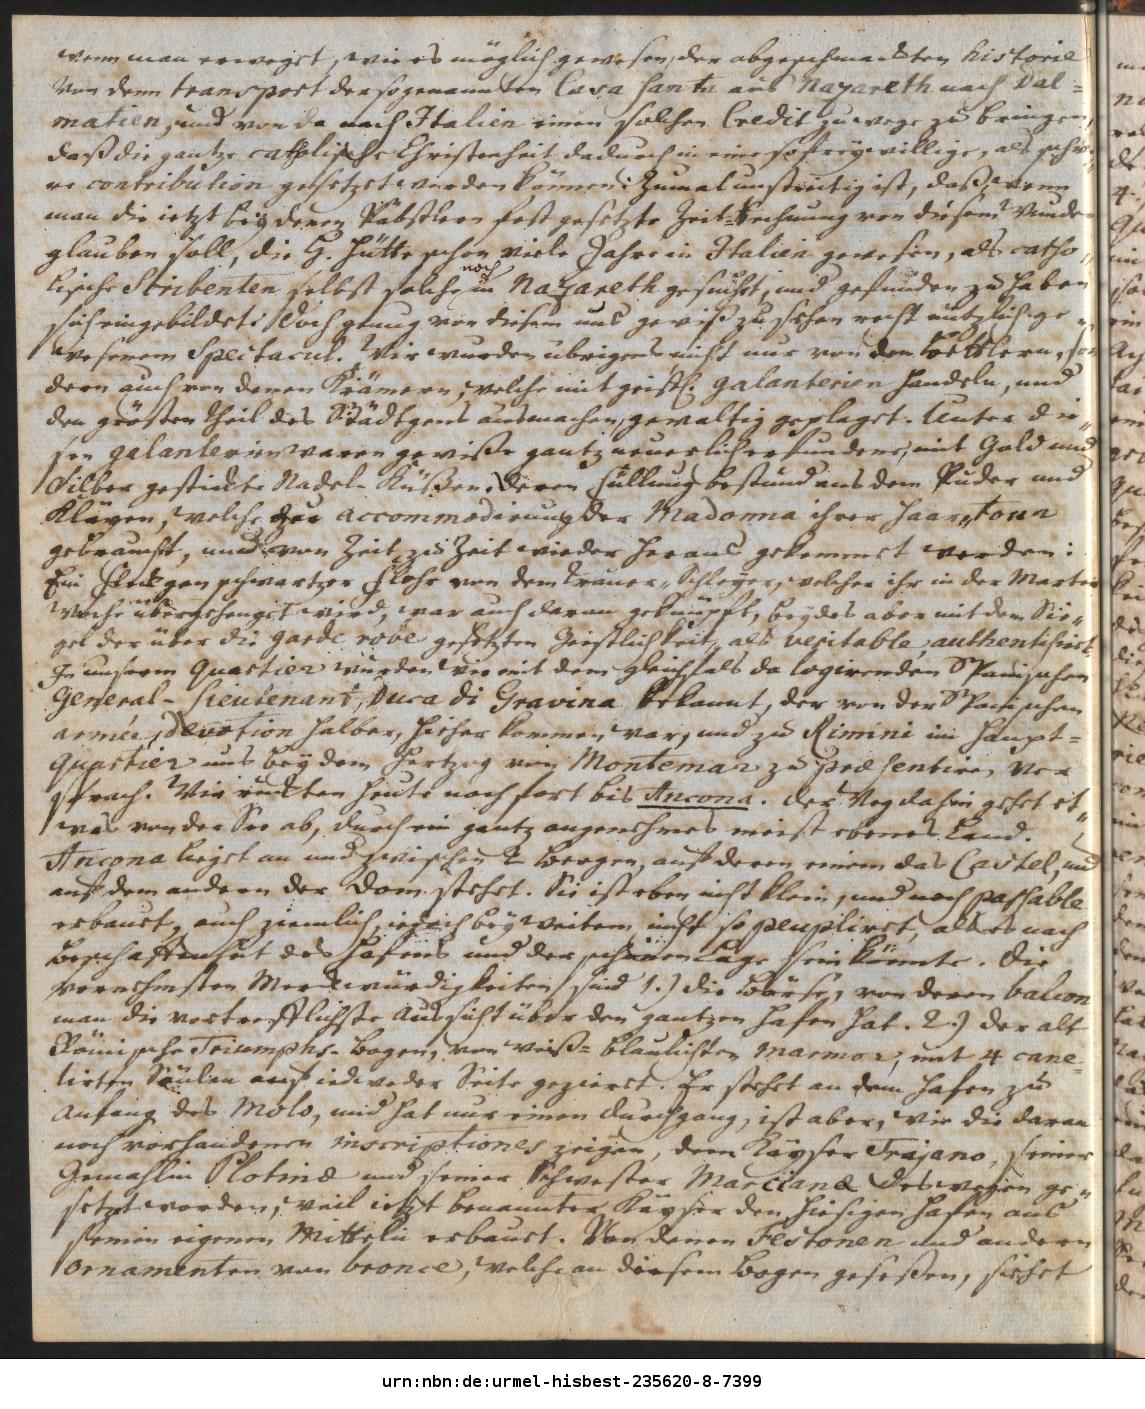 wenn man erweget, wie es möglich gewesen, der abgeschmackten historie
von dem transport der sogenannten Casa santa aus Nazareth nach Dal=
matien, und von da nach Italien einen solchen Credit zuwege zu bringen,
daß die gantze catholische Christenheit dadurch in eine so freywillige, als schwe„
re contribution gesetzet werden können: Zumal unstreitig ist, daß, wenn
man die ietzt bey denen Päbstlern fest gesetzte Zeit-Rechnung von diesem Wunder
glauben soll, die H. Hütte schon viele Jahre in Italien gewesen, als catho„
lische Scribenten selbst solche noch in Nazareth gesucht, und gefunden zu haben
sich eingebildet. Doch genug von diesem uns gewiß zu sehen recht nützlich ge„
wesenem Spectacul. Wir wurden übrigens nicht nur von den Bettlern, son„
dern auch von denen Krämern, welche mit geistl. galanterien handeln, und
den grösten theil des Städtgens ausmachen, gewaltig geplaget. Unter die„
sen galanterien waren gewisse gantz neuerlich erfundene, mit Gold und
Silber gestickte Nadel-Küßen, deren Füllung bestund aus dem Puder und
Kläyen, welche zur accommodirung der Madonna ihrer Haar„tour
gebraucht, und von Zeit zu Zeit wieder heraus gekemmet werden:
Ein Fleckgen schwartzer Flohr von dem trauer„Schleyer, welcher ihr in der Marter
Woche übergehenget wird, war auch daran geknüpft, beydes aber mit dem Sie„
gel der über die garde robe gesetzten Geistlichkeit, als veritable, authentisiret.
In unserm Quartier wurden wir mit dem gleichfals da logirenden Spanischen
General-Lieutenant, Duca di Gravina bekannt, der von der Spanischen
armée, devotion halber, hieher kommen war, und zu Rimini im Haupt=
quartier uns bey dem Hertzog von Montemar zu præsentiren ver
sprach. Wir rückten heute noch fort bis Ancona. Der Weg dahin gehet et„
was von der See ab, durch ein gantz angenehmes meist ebenes Land.
Ancona lieget an und zwischen 2 Bergen, auf deren einem das Castel, und
auf dem andern der Dom stehet. Sie ist eben nicht klein, und noch passable
erbauet, auch ziemlich, iedoch bey weitem nicht so peuplirt, als es nach
Beschaffenheit des Hafens und der schönen Lage sein könnte. Die
vornehmsten Merckwürdigkeiten sind 1.) die Börse, von deren balcon
man die vortrefflichste Aussicht über den gantzen Hafen hat. 2.) der alt
Römische Triumphs-Bogen, von weiß=blaulichten marmor, mit 4 cane„
lirten Säulen auf iedweder Seite gezieret. Er stehet an dem Hafen zu
Anfang des Molo, und hat nur einen Durchgang, ist aber, wie die daran
noch vorhandenen inscriptiones zeigen, dem Kayser Trajano, seiner
Gemahlin Plotinæ und seiner Schwester Marcianæ deswegen ge„
setzt worden, weil ietzt benannter Kayser den hiesigen Hafen aus
seinen eigenen Mitteln erbauet. Von denen Festonen und andern
ornamenten von bronce, welche an diesem Bogen gesessen, siehet
urn:nbn:de:urmel-hisbest-235620-8-7399